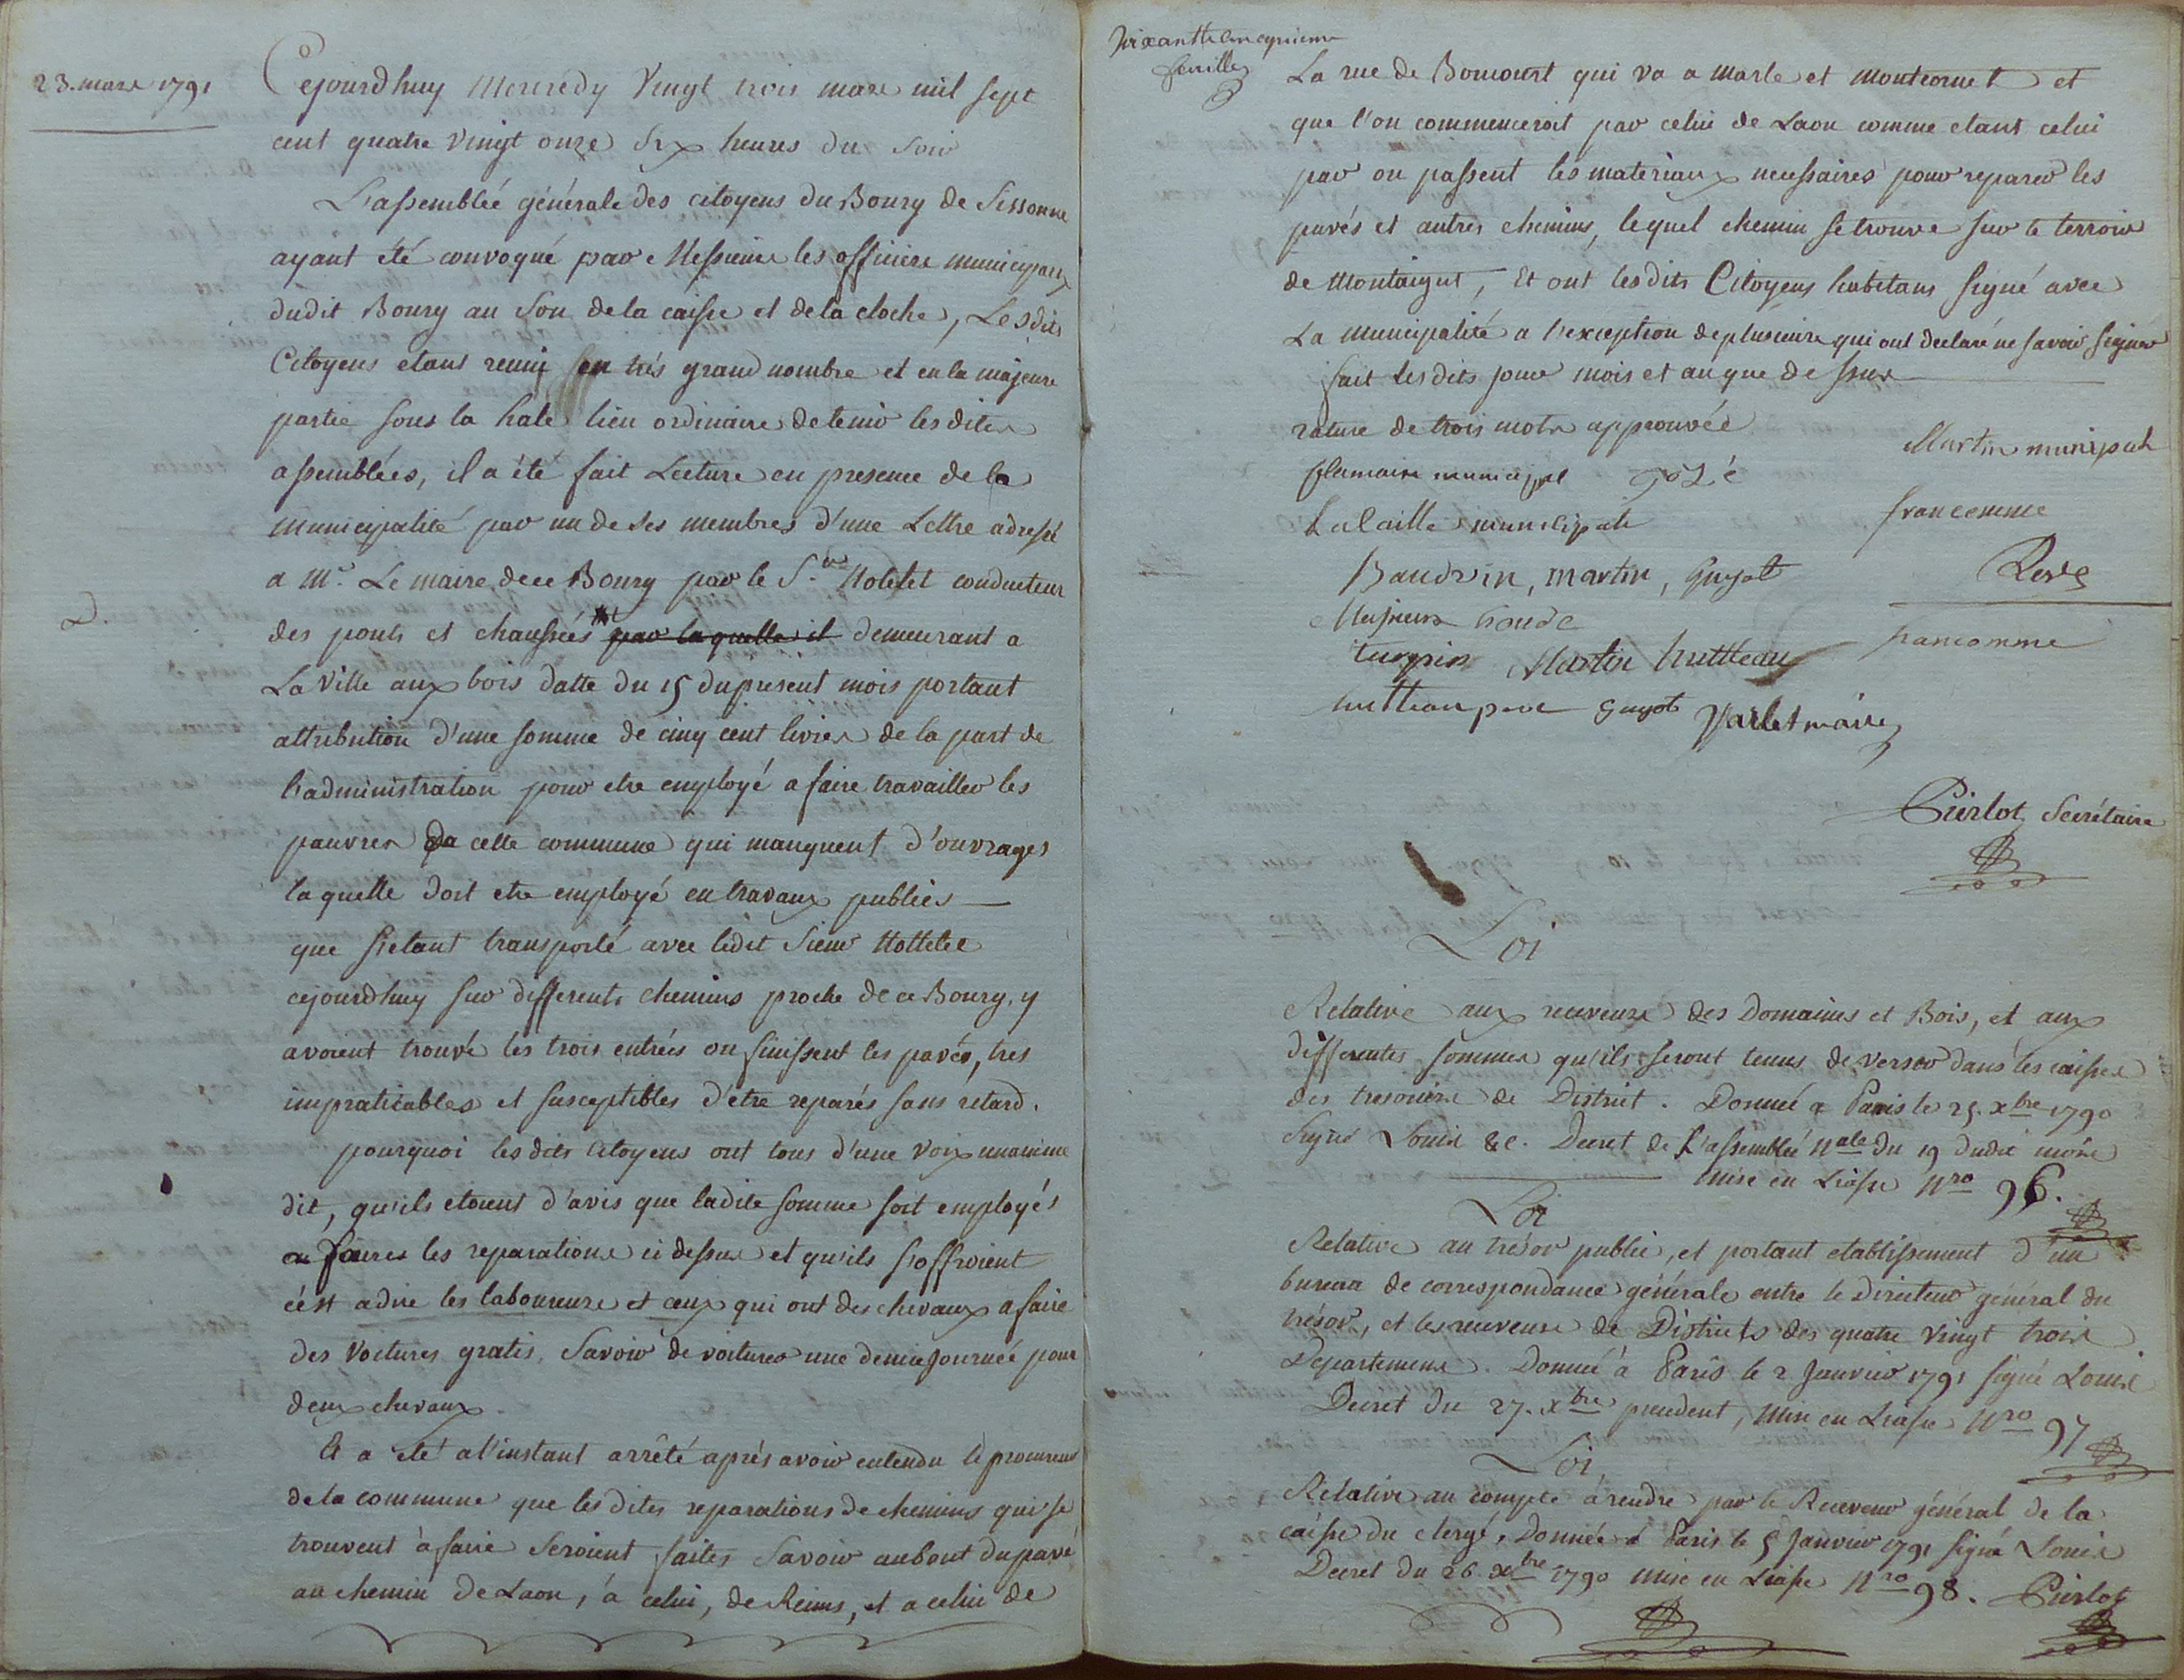 23. mars 1791
Cejourdhuy Mercredy Vingt trois mars mil sept
cent quatre vingt onze six heures du soir
L'assemblée générale des citoyens du Bourg de Sissonne
ayant été convoqué par Messieurs les officiers municipaux
dudit Bourg au son de la caisse et de la cloche, Lesdits
Citoyens etans reunis en très grand nombre et en la majeure
partie sous la hale lieu ordinaire de tenir les dites
assemblées, il a été fait Lecture en presence de la
municipalité par un de ses membres d'une Lettre adressé
a Mr. Le maire de ce Bourg par le Sr. Hotelet conducteur
des ponts et chaussées par laquelle il demeurant a
La Ville aux bois datte du 15 du present mois portant
attribution d'une somme de cinq cent livres de la part de
l'administration pour etre employé a faire travailler les
pauvres de cette commune qui manquent d'ouvrages
laquelle doit etre employé en travaux publics —
que s'etant transporté avec ledit sieur Hottelet
cejourdhuy sur differents chemins proche de ce Bourg, y
avoient trouvé les trois entrées ou finissent les pavés, tres
impraticables et susceptibles d'être reparés sans retard.
pourquoi les dits Citoyens ont tous d'une voix unanime
dit, qu'ils etoient d'avis que ladite somme soit employés
a faires les reparations ci dessus et qu'ils s'offroient
c'est adire les laboureurs et ceux qui ont des chevaux a faire
des voitures gratis, Savoir de voitures une demie journeé pour
deux chevaux.
Et a eté a l'instant arrêté après avoir entendu le procureur
de la commune que les dites reparations de chemins qui se
trouvent à faire seroient faites Savoir au bout du pavé
au chemin de Laon, à celui, de Reims, et a celui de
feuille
La rue de Boncourt qui va a Marle et Montcornet et
que l'on commenceroit par celui de Laon comme etant celui
par ou passent les materiaux necessaires pour reparer les
pavés et autres chemins, lequel chemin se trouve sur le terroir
de Montaigut, Et ont lesdits Citoyens habitans signé avec
La municipalité a l'exception de plusieurs qui ont declaré ne savoir signer
fait lesdits jour mois et an que dessus
rature de trois mots approuvée
Martin municipal
municipal
Lalaille municipale
francomme
Baudoin, martin, Guyot
houde
turpin Martin hutteau
francomme
hutteau pere guyot Varlet maire
Pierlot Secrétaire
Loi
Relative aux receveurs des Domaines et Bois, et aux
differentes sommes qu'ils seront tenus de verser dans les caisses
des tresoriers de District. Donnée a Paris le 25. xbre 1790
Signé Louis &c. Decret de L'assemblée Nale du 19 dudit mois
mise en Liasse Nro 96.
Loi
Relative au trésor public, et portant etablissement d'un
bureau de correspondance générale entre le Directeur général du
trésor, et les receveurs de Districts des quatre vingt trois
Departemens. Donnée à Paris le 2 Janvier 1791 signé Louis
Decret du 27. xbre precedent, Mise en Liasse Nro 97
Loi
Relative au compte à rendre par le Receveur général de la
caisse du clergé. Donnée à Paris le 5 Janvier 1791 signé Louis
Decret du 26 xbre 1790 mise en Liasse Nro 98. Pierlot